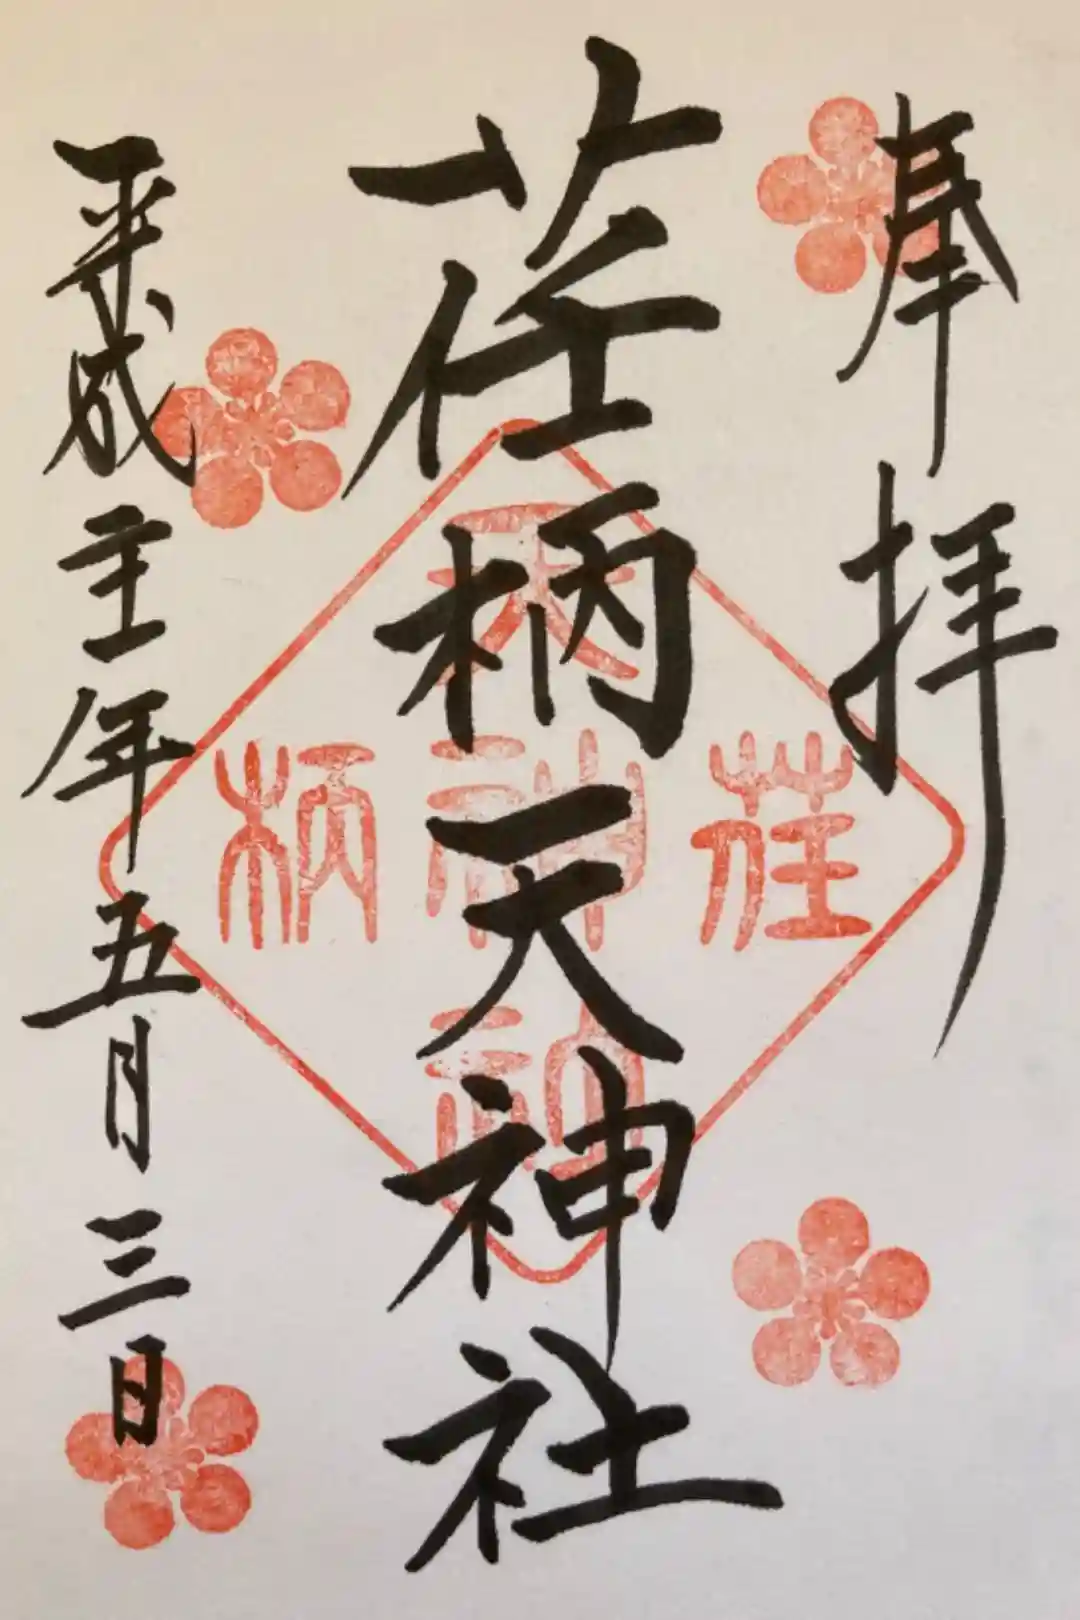 奉拝
荏柄天神社
平成年五月三日
天
荏
柄